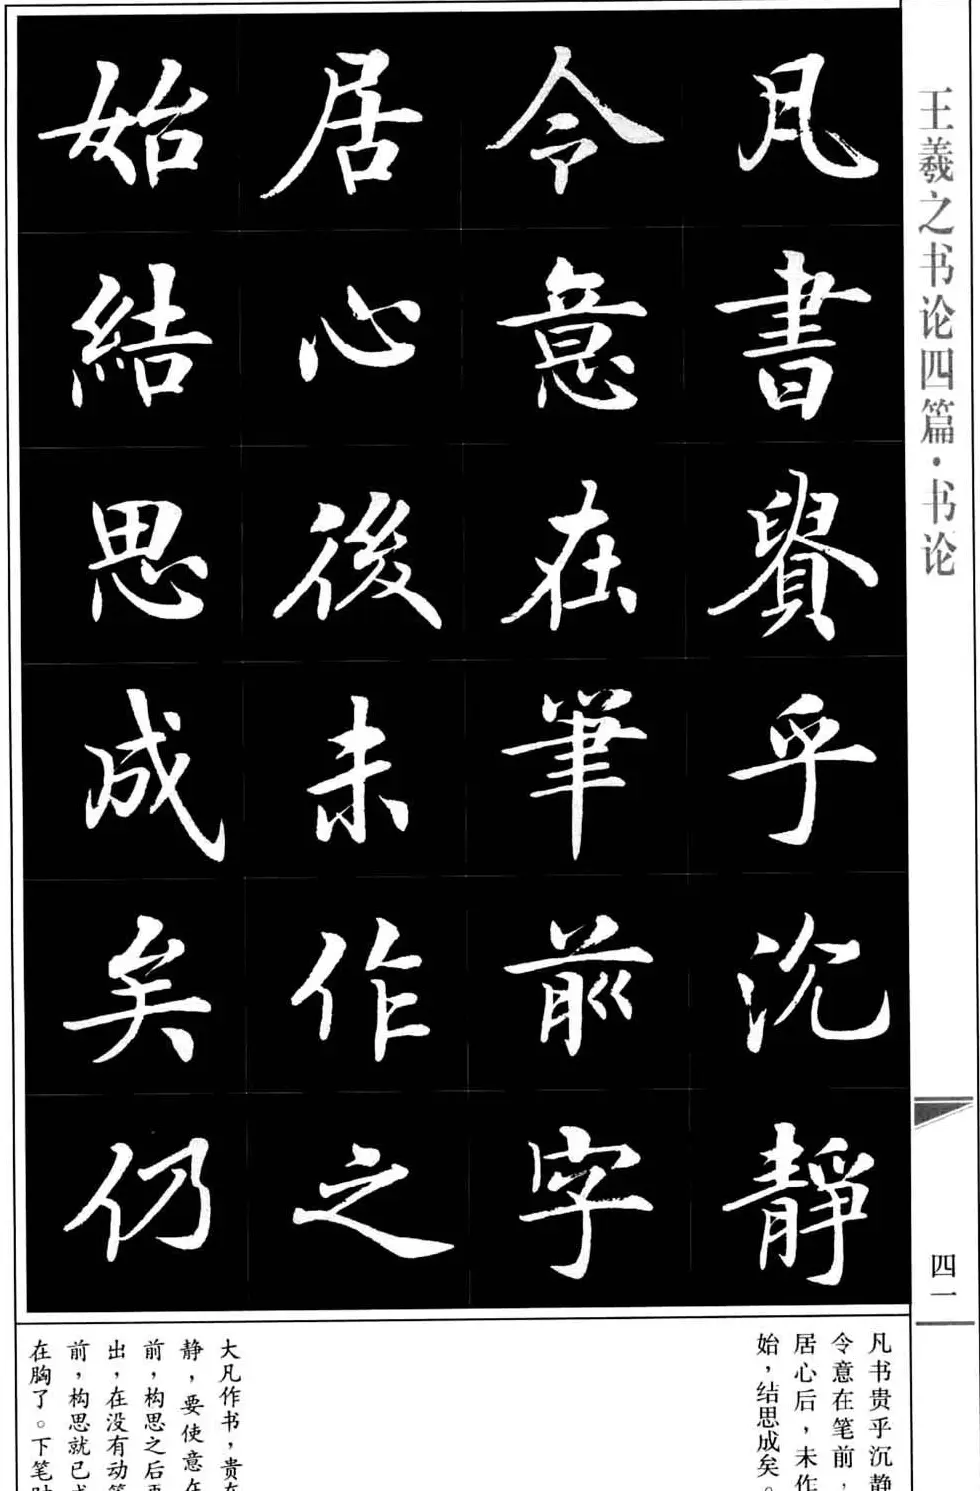 凡書貴乎沉靜
令意在筆前字
居心後未作之
始結思成矣仍
王羲之书论四篇·书论
四一
凡书贵乎沉静
令意在笔前，
居心后，未作
始，结思成矣。
大凡作书，贵在
静，要使意在
前，构思之后再
出，在没有动笔
前，构思就已成
在胸了。下笔